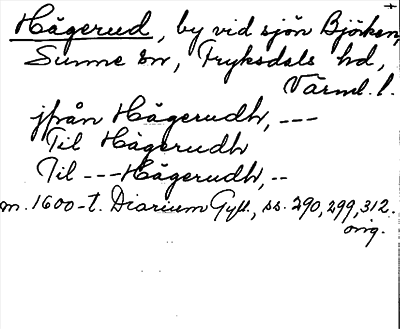 Hågerud, by vid sjön Björken,
Sunne sn, Fryksdals hd,
Värml. l.
jfrån Hågerudh, ---
Til Hågerudh
Til --- Hågerudh, --
m. 1600-t. Diarium Gyll., ss. 290, 299, 312.
orig.